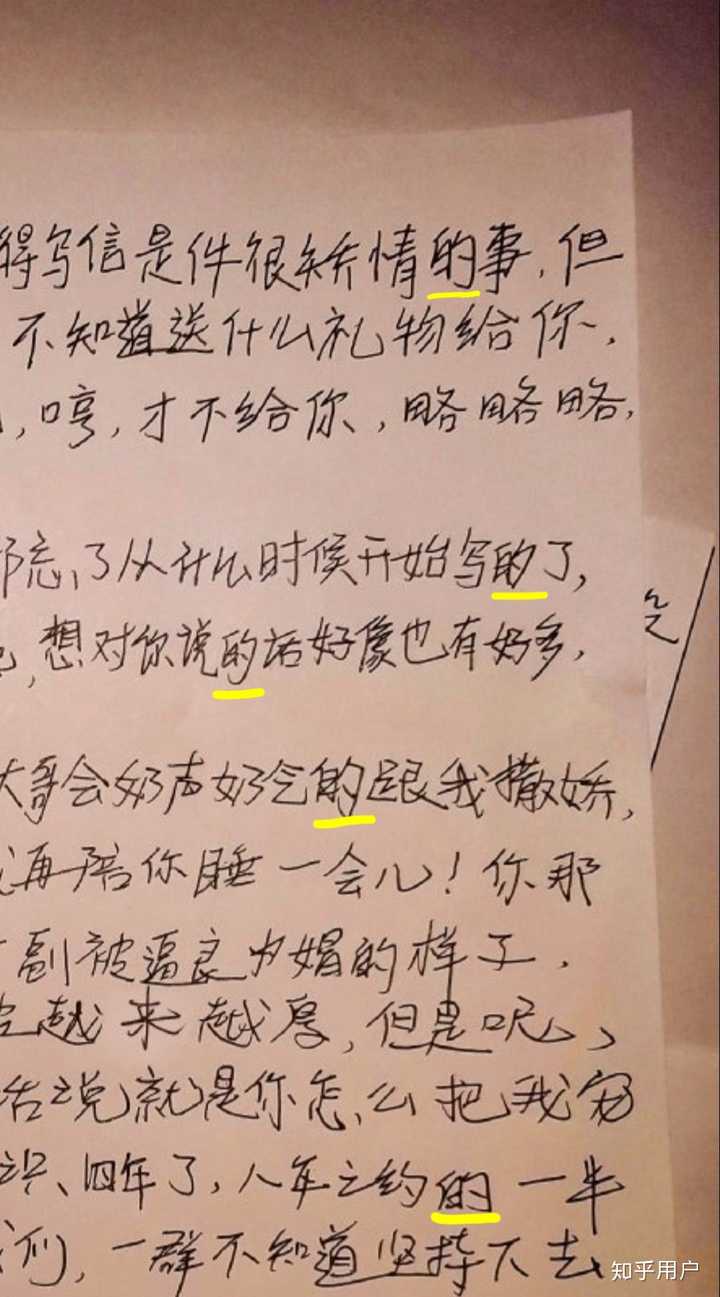 得写信是件很矫情的事，但
不知道送什么礼物给你，
，哼，才不给你，略略略，
都忘了从什么时候开始写的了，
，想对你说的话好像也有好多，
大哥会奶声奶气的跟我撒娇，
再陪你睡一会儿！你那
副被逼良为娼的样子，
越来越厚，但是呢，
话说就是你怎么把我宠
识、四年了，八年之约的一半
我们，一群不知道坚持下去
知乎用户